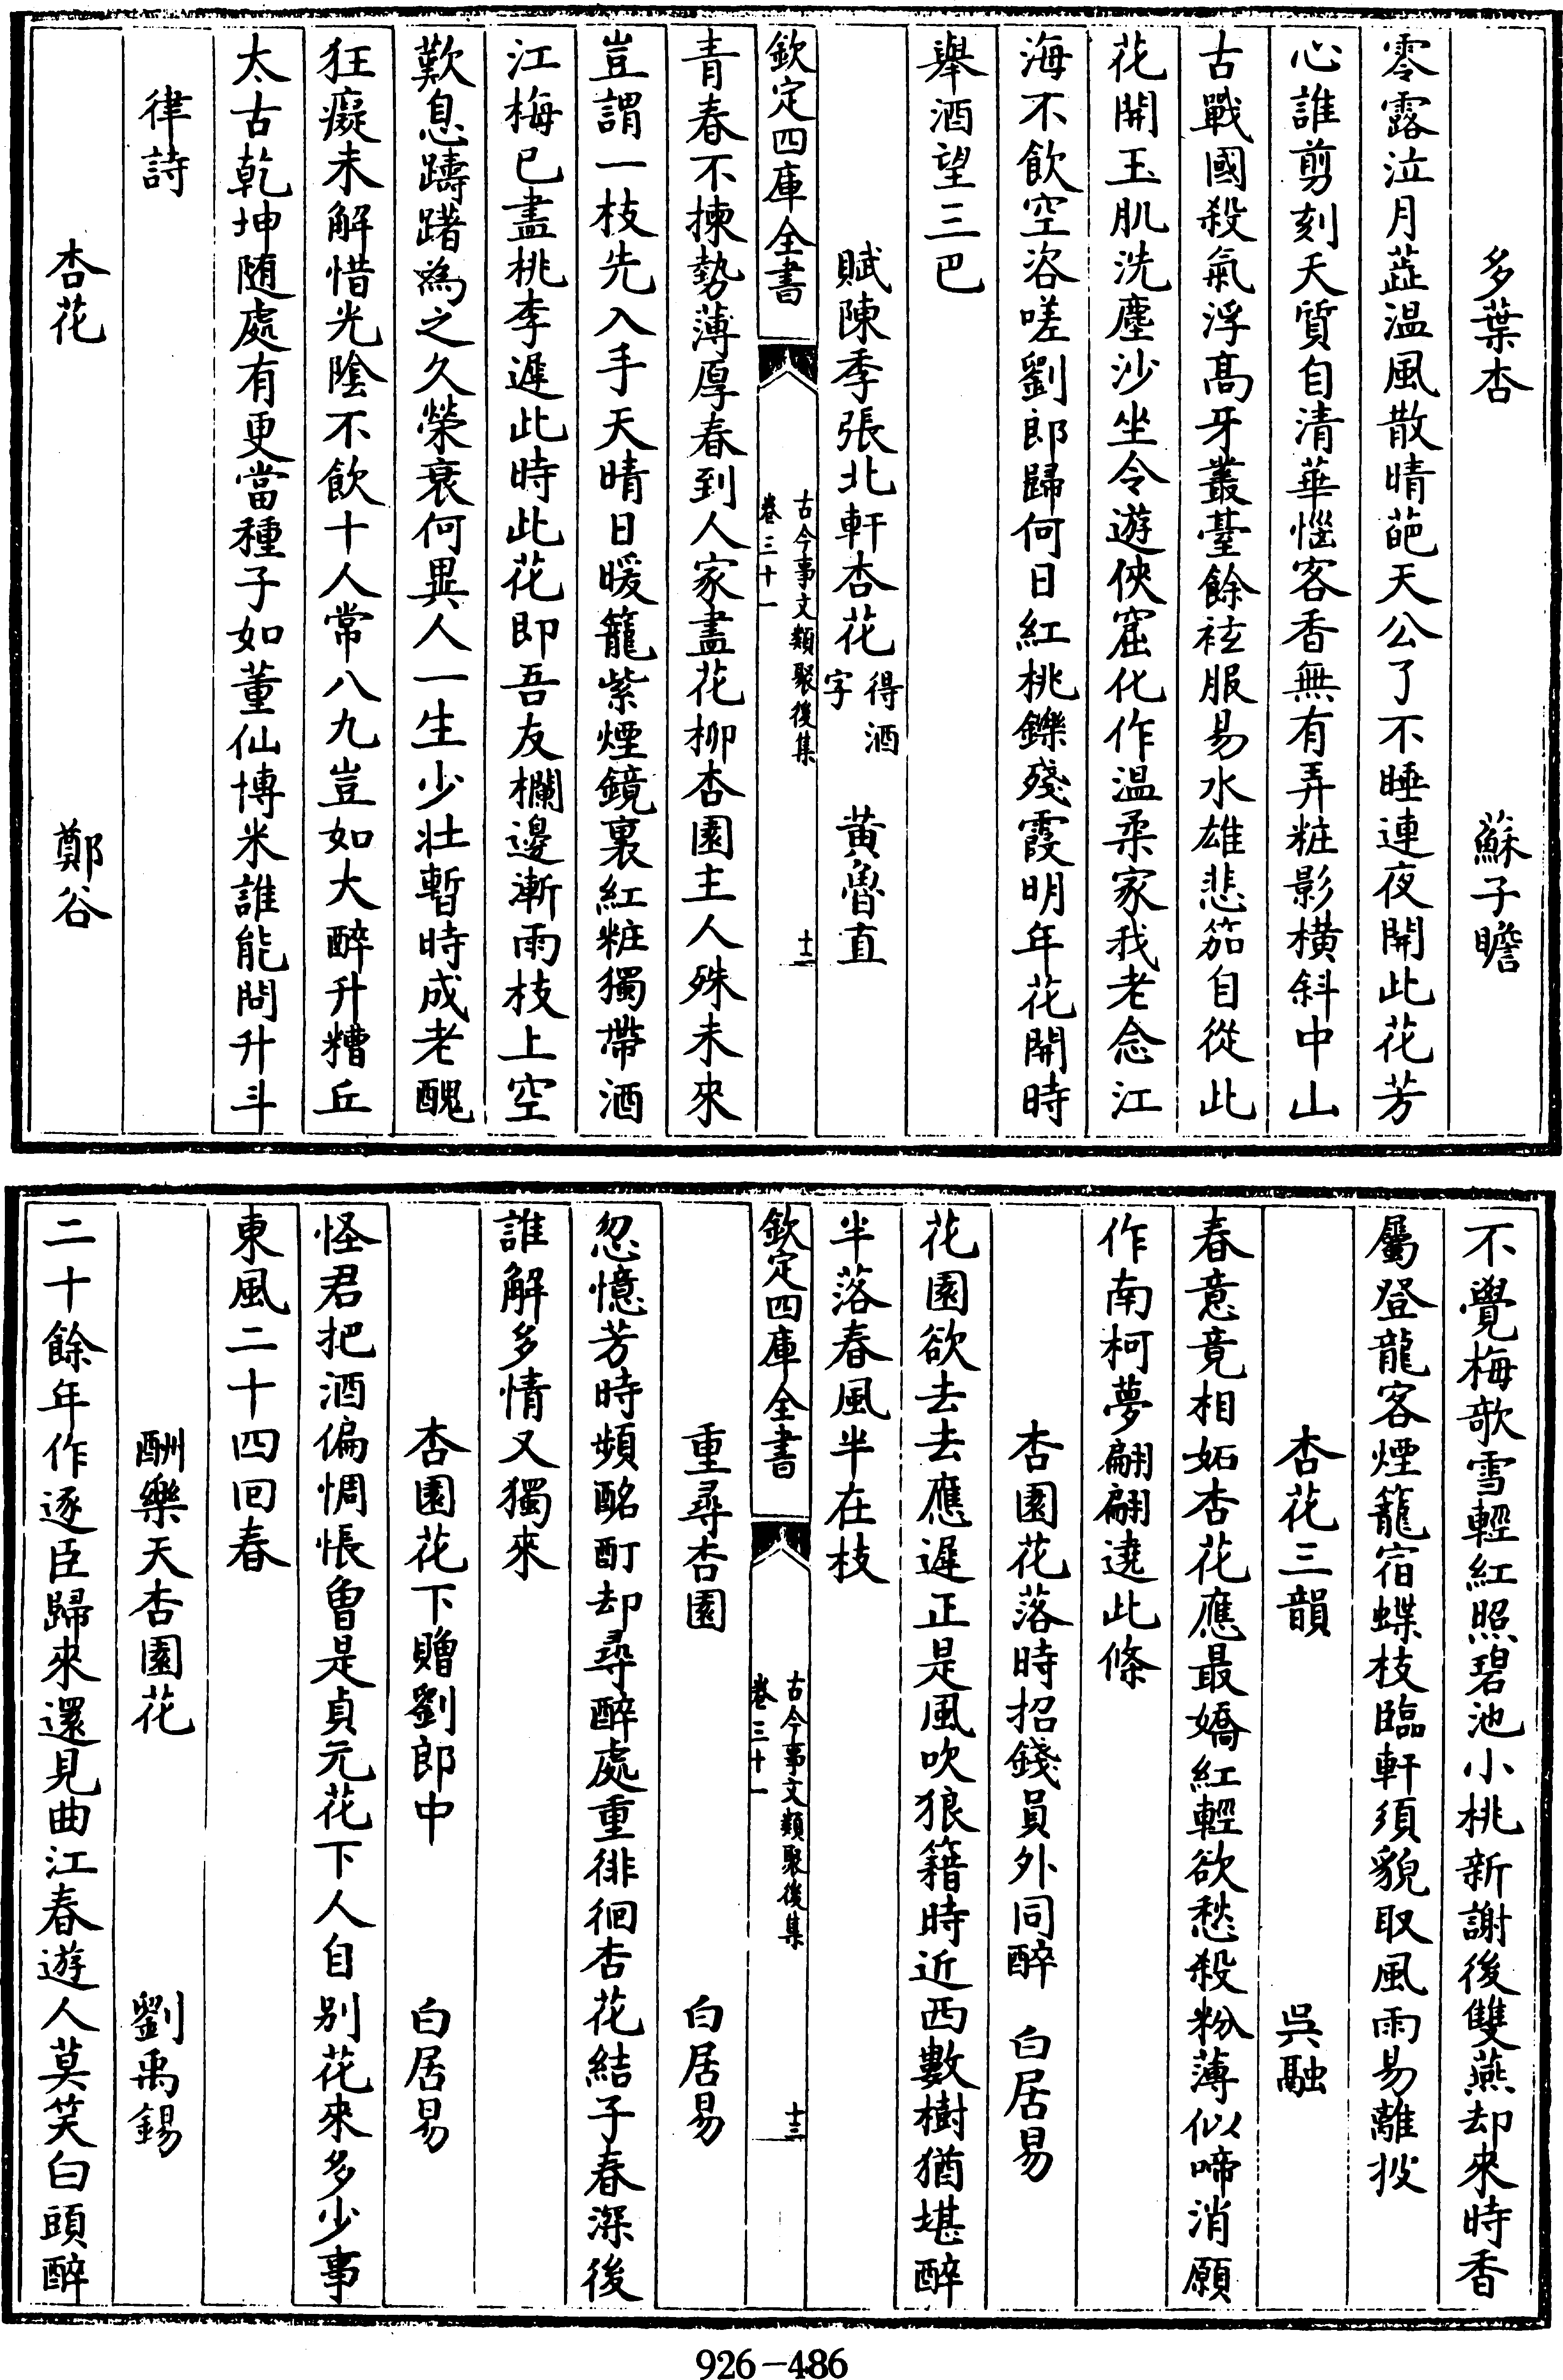 多葉杏 蘇子瞻
零露泣月蕋温風散晴葩天公了不睡連夜開此花芳
心誰剪刻天質自清華惱客香無有弄粧影橫斜中山
古戰國殺氣浮髙牙叢臺餘袨服易水雄悲笳自從此
花開玉肌洗塵沙坐令遊俠窟化作温柔家我老念江
海不飲空咨嗟劉郎歸何日紅桃鑠殘霞明年花開時
舉酒望三巴
賦陳季張北軒杏花得酒字 黄魯直
欽定四庫全書 古今事文類聚後集 卷三十一 十二
青春不揀勢薄厚春到人家盡花柳杏園主人殊未來
豈謂一枝先入手天晴日暖籠紫煙鏡裏紅粧獨帶酒
江梅已盡桃李遲此時此花即吾友欄邊漸雨枝上空
歎息躊躇為之久榮衰何異人一生少壯暫時成老醜
狂癡未解惜光陰不飲十人常八九豈如大醉升糟丘
太古乾坤随處有更當種子如董仙博米誰能問升斗
律詩
杏花 鄭谷
不覺梅欹雪輕紅照碧池小桃新謝後雙燕却來時香
屬登龍客煙籠宿蝶枝臨軒須貌取風雨易離披
杏花三韻 吳融
春意竟相妬杏花應最嬌紅輕欲愁殺粉薄似啼消願
作南柯夢翩翩遶此條
杏園花落時招錢員外同醉 白居易
花園欲去去應遲正是風吹狼籍時近西數樹猶堪醉
半落春風半在枝
欽定四庫全書 古今事文類聚後集 卷三十一 十三
重尋杏園 白居易
忽憶芳時頻酩酊却尋醉處重徘徊杏花結子春深後
誰解多情又獨來
杏園花下贈劉郎中 白居易
怪君把酒偏惆悵曽是貞元花下人自别花來多少事
東風二十四回春
酬樂天杏園花 劉禹錫
二十餘年作逐臣歸來還見曲江春遊人莫笑白頭醉
926-486